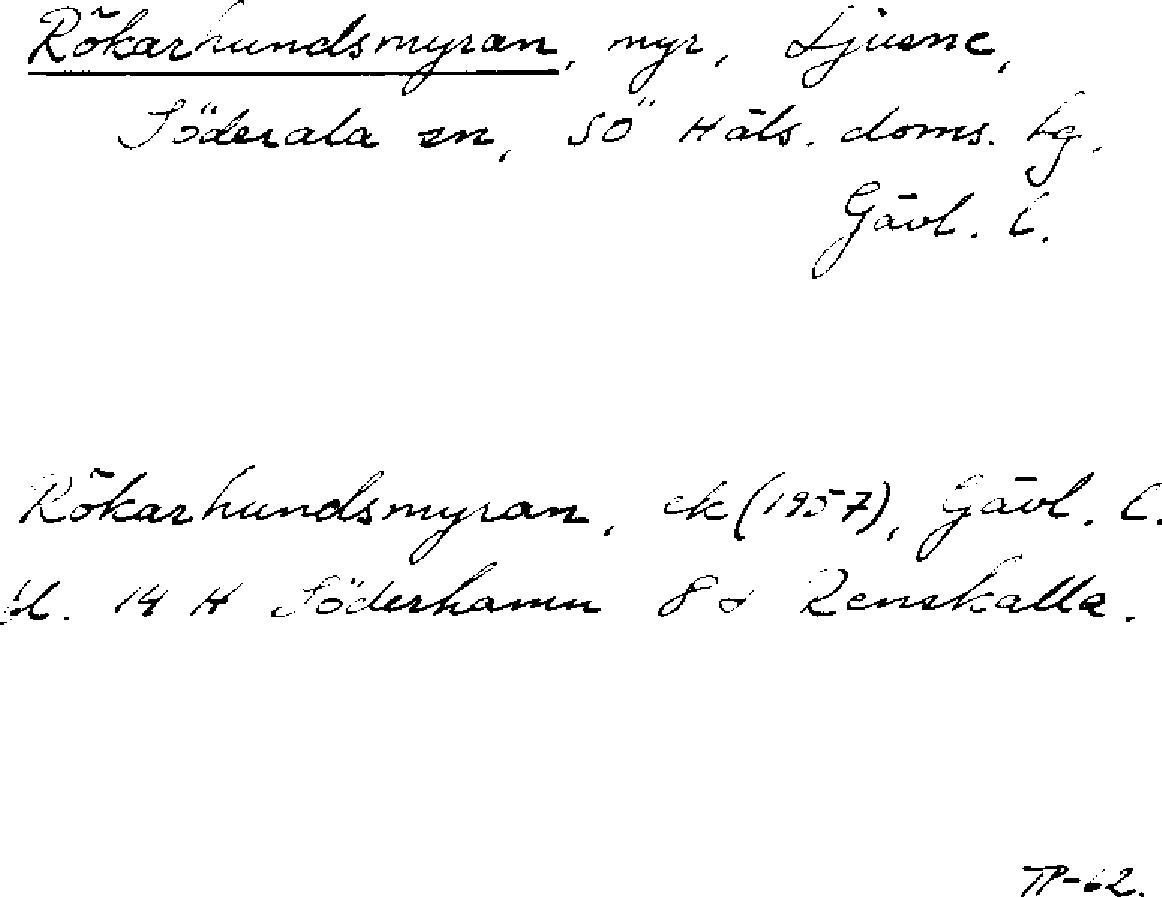 Rökarhundsmyran, myr, Ljusne,
Söderala sn, SÖ Häls. doms. hg.
Gävl. l.
Rökarhundsmyran, ek (1957), Gävl. l.
bl. 14 H Söderhamn 8 d Renskalla.
TP-62.